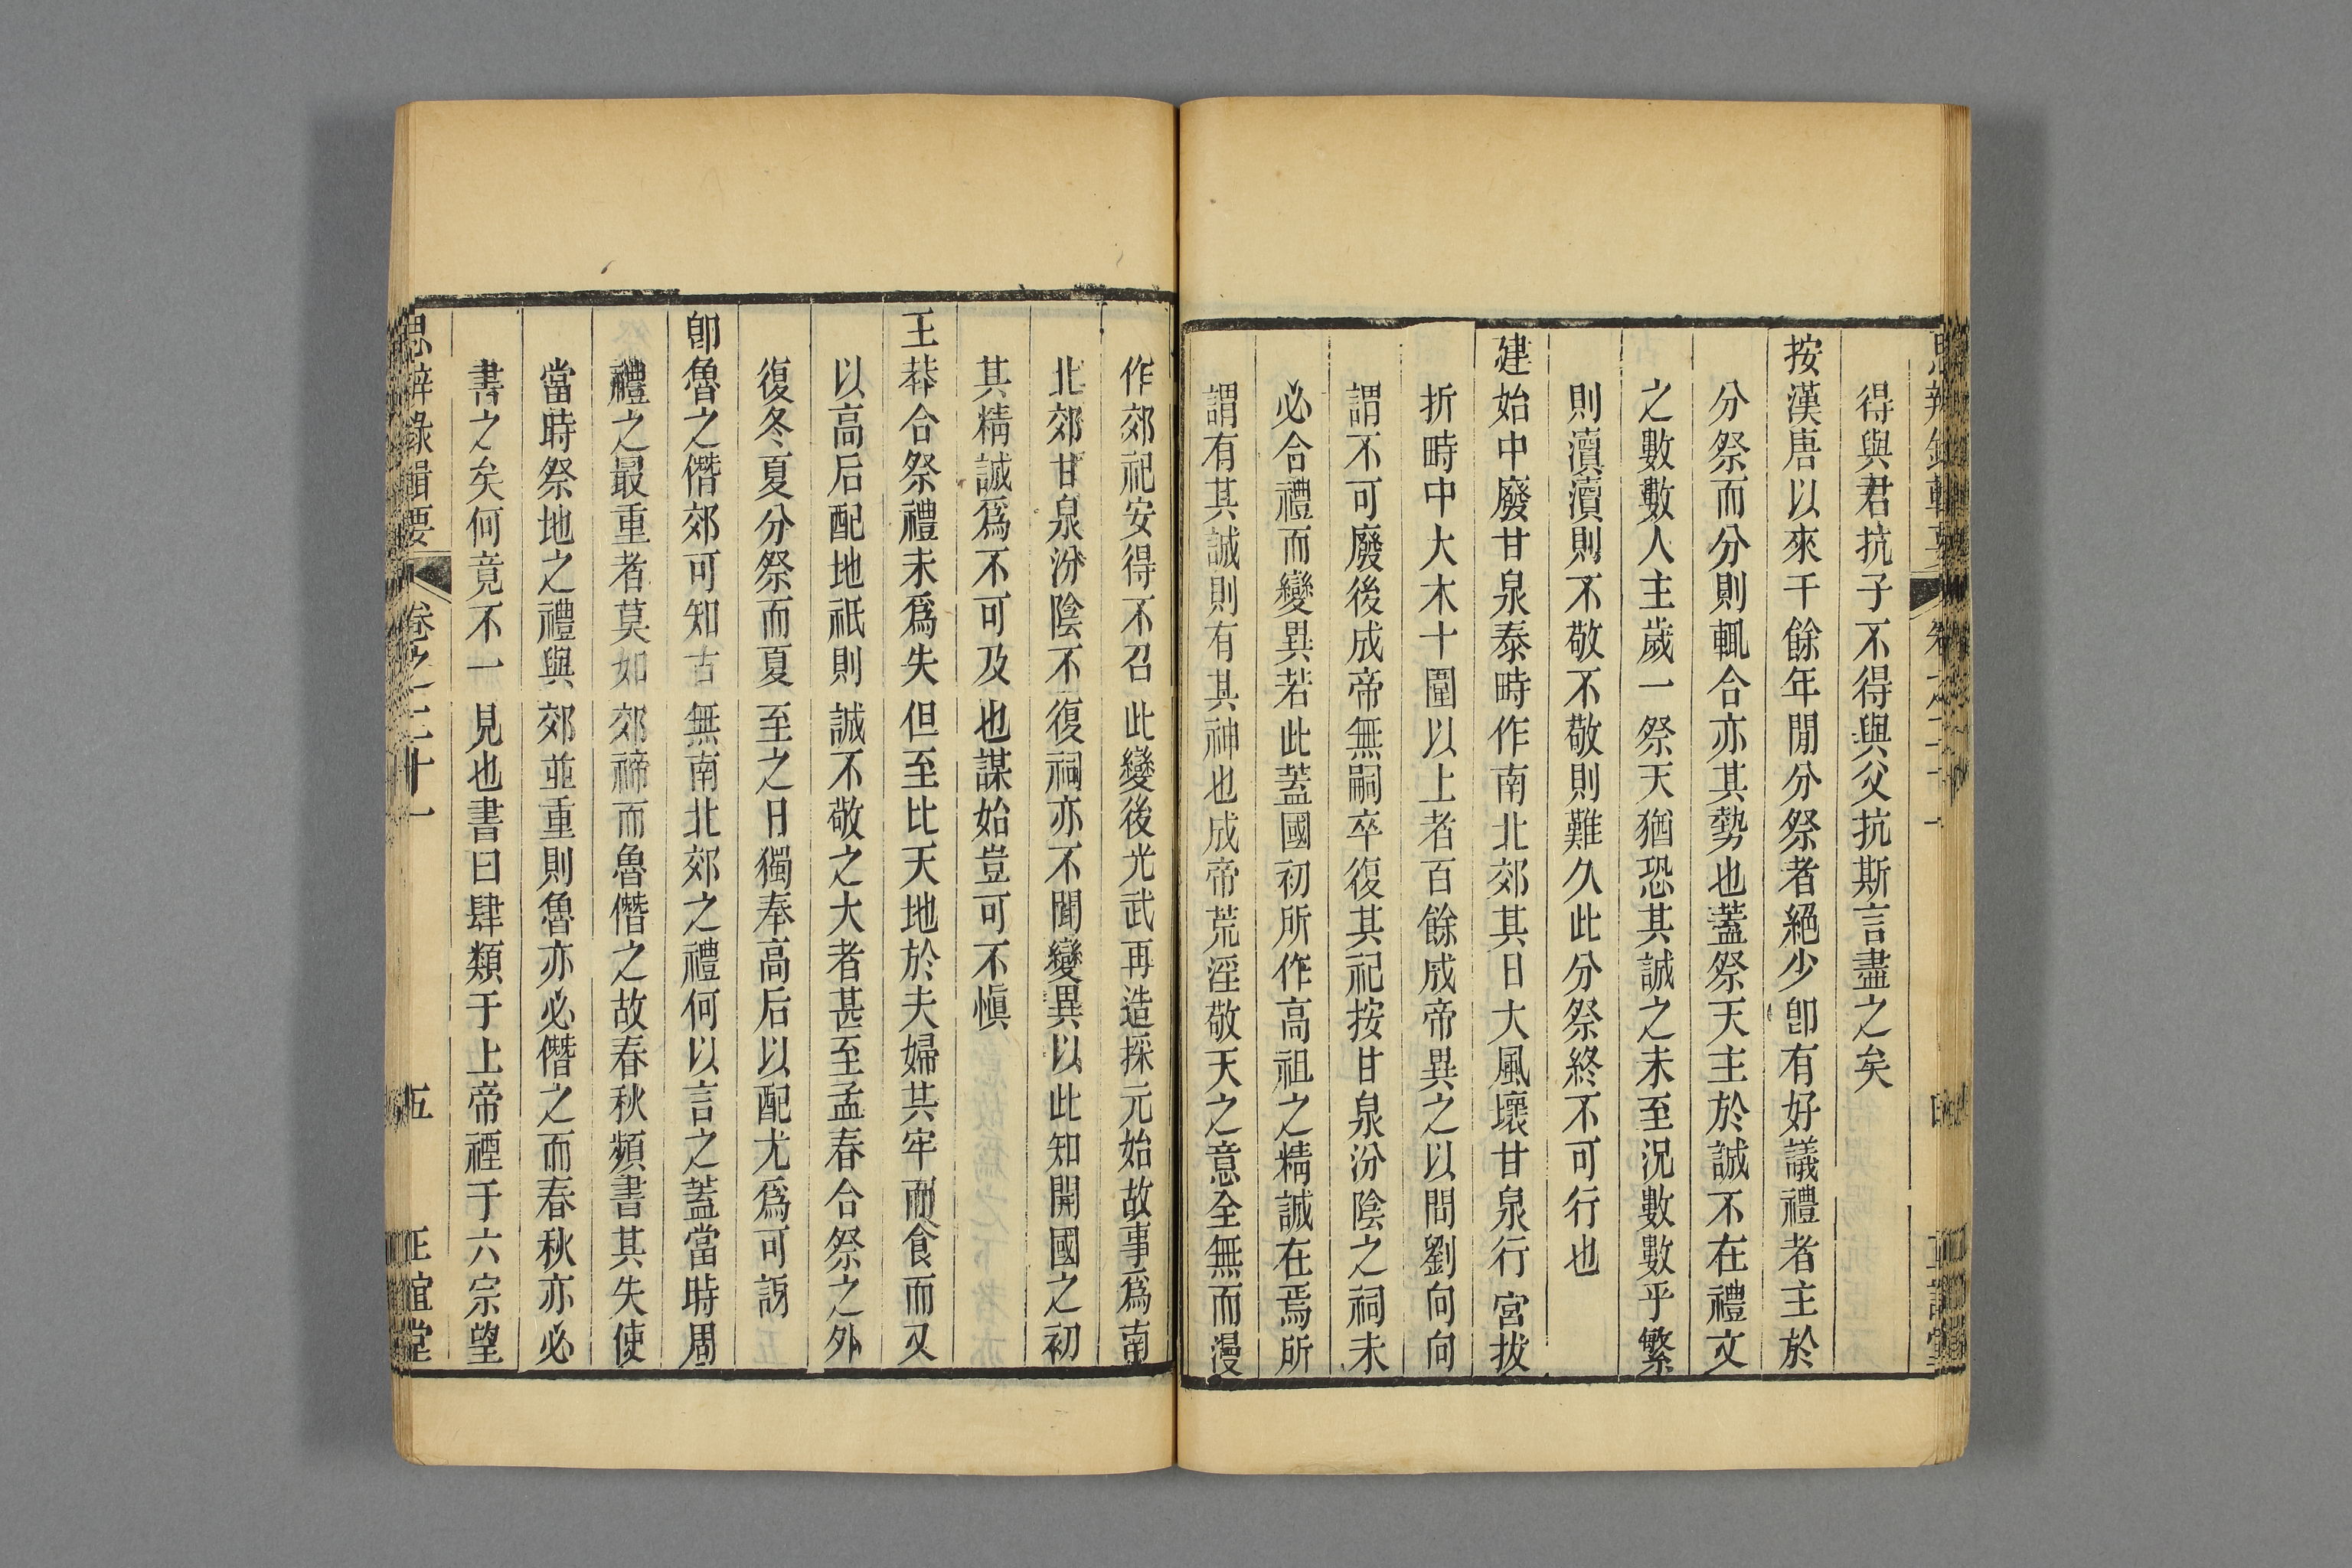 得與君抗子不得與父抗斯言盡之矣
按漢唐以來千餘年閒分祭者絕少卽有好議禮者主於
分祭而分則輒合亦其勢也蓋祭天主於誠不在禮文
之數數人主歲一祭天猶恐其誠之未至況數數乎繁
則瀆瀆則不敬不敬則難久此分祭終不可行也
建始中廢甘泉泰畤作南北郊其日大風壞甘泉行宮拔
折畤中大木十圍以上者百餘成帝異之以問劉向向
謂不可廢後成帝無嗣卒復其祀按甘泉汾陰之祠未
必合禮而變異若此蓋國初所作高祖之精誠在焉所
謂有其誠則有其神也成帝荒淫敬天之意全無而漫
作郊祀安得不召此變後光武再造採元始故事爲南
北郊甘泉汾陰不復祠亦不聞變異以此知開國之初
其精誠爲不可及也謀始豈可不愼
王莽合祭禮未爲失但至比天地於夫婦共牢而食而又
以高后配地祇則誠不敬之大者甚至孟春合祭之外
復冬夏分祭而夏至之日獨奉高后以配尤爲可訝
卽魯之僭郊可知古無南北郊之禮何以言之蓋當時周
禮之最重者莫如郊禘而魯僭之故春秋頻書其失使
當時祭地之禮與郊並重則魯亦必僭之而春秋亦必
書之矣何竟不一見也書曰肆類于上帝禋于六宗望
思辨錄輯要 卷之二十一 五 正誼堂